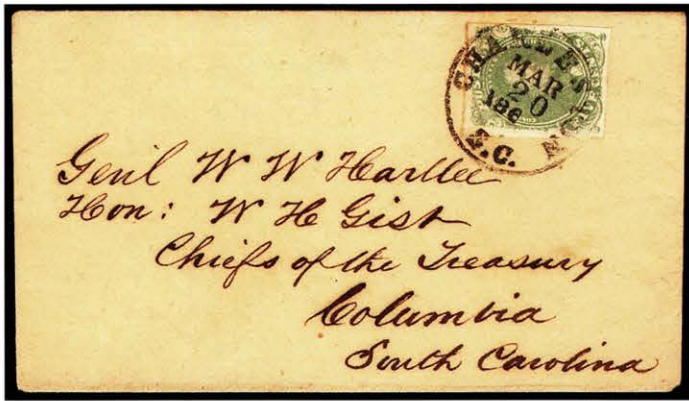 CHARLESTON
MAR
20
186
S.C.
Genl W W Harllee
Hon: W H Gist
Chiefs of the Treasury
Columbia
South Carolina